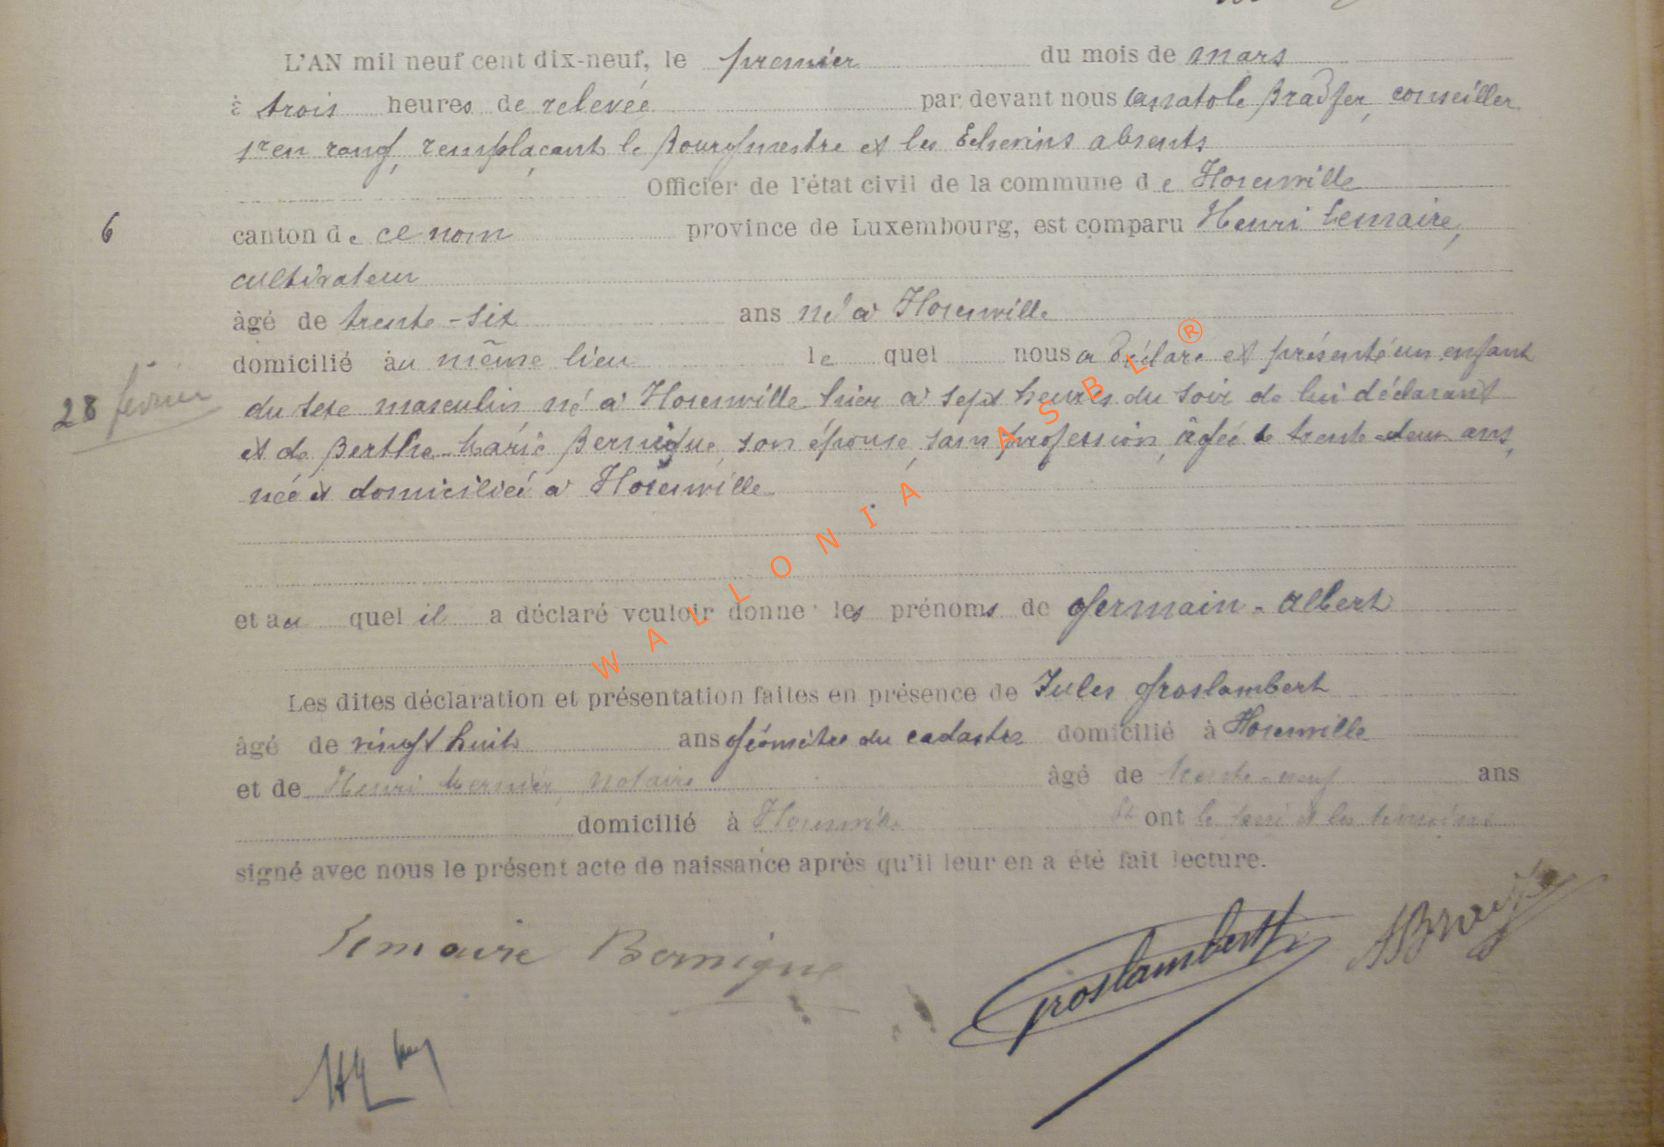 L'AN mil neuf cent dix-neuf, le premier du mois de mars
à trois heures de relevée par devant nous Anatole Bradfer, conseiller
1er en rang, remplaçant le Bourgmestre et les Echevins absents
Officier de l'état civil de la commune de Hosenville
6 canton de ce nom province de Luxembourg, est comparu Henri Lemaire,
cultivateur
âgé de trente-six ans né à Hosenville
domicilié au même lieu le quel nous a déclaré et présenté un enfant
28 février
du sexe masculin né à Hosenville hier à sept heures du soir de lui déclarant
et de Berthe-Marie Bernique, son épouse, sans profession, âgée de trente-deux ans,
née et domiciliée à Hosenville
et au quel il a déclaré vouloir donner les prénoms de Germain-Albert
Les dites déclaration et présentation faites en présence de Jules Groslambert
âgé de vingt huit ans géomètre du cadastre domicilié à Hosenville
et de Henri notaire âgé de trente-neuf ans
domicilié à Hosenville Et ont le père et les témoins
signé avec nous le présent acte de naissance après qu'il leur en a été fait lecture.
Lemaire Bernique
Groslambert
WALLONIA ASBL ®